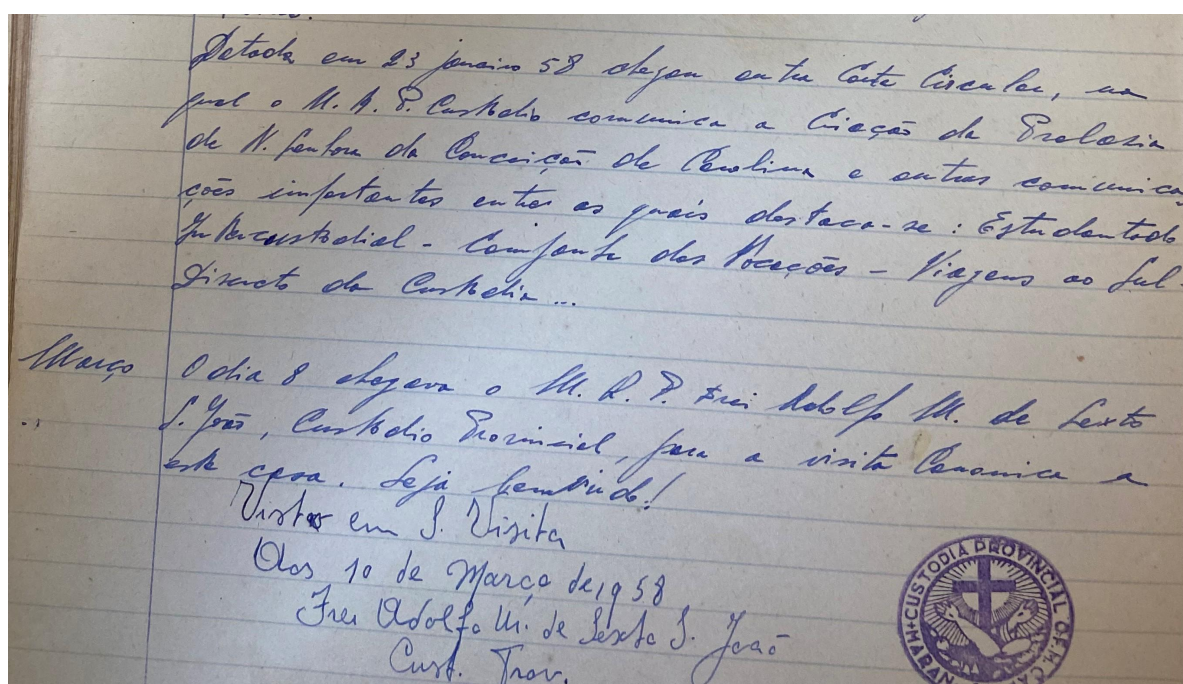 Datada em 23 janeiro 58 chegou outra Carta Circular, na
qual o M. R. P. Custodio comunica a Criação da Prelazia
de N. Senhora da Conceição de Carolina e outras comunica
ções importantes entre as quais destaca-se: Estudantado
Intercustodial - Campanha das Vocações - Viagens ao Sul -
Discreto da Custodia...
Março
O dia 8 chegava o M. R. P. Frei Adolfo M. de Sexto
S. João, Custodio Provincial, para a visita Canonica a
esta casa. Seja bemvindo!
Visto em S. Visita
Aos 10 de Março de 1958
Frei Adolfo M. de Sexto S. João
Cust. Prov.
CUSTODIA PROVINCIAL O.F.M. CA
MARAN